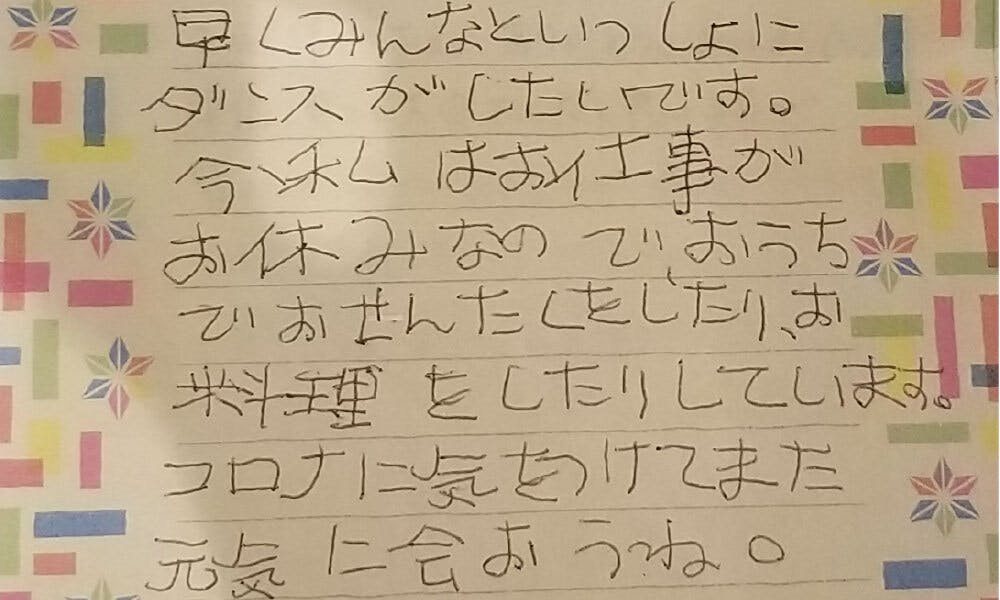 早くみんなといっしょに
ダンスがしたいです。
今、私はお仕事が
お休みなのでおうち
でおせんたくをしたり、お
料理をしたりしています。
コロナに気をつけてまた
元気に会おうね。